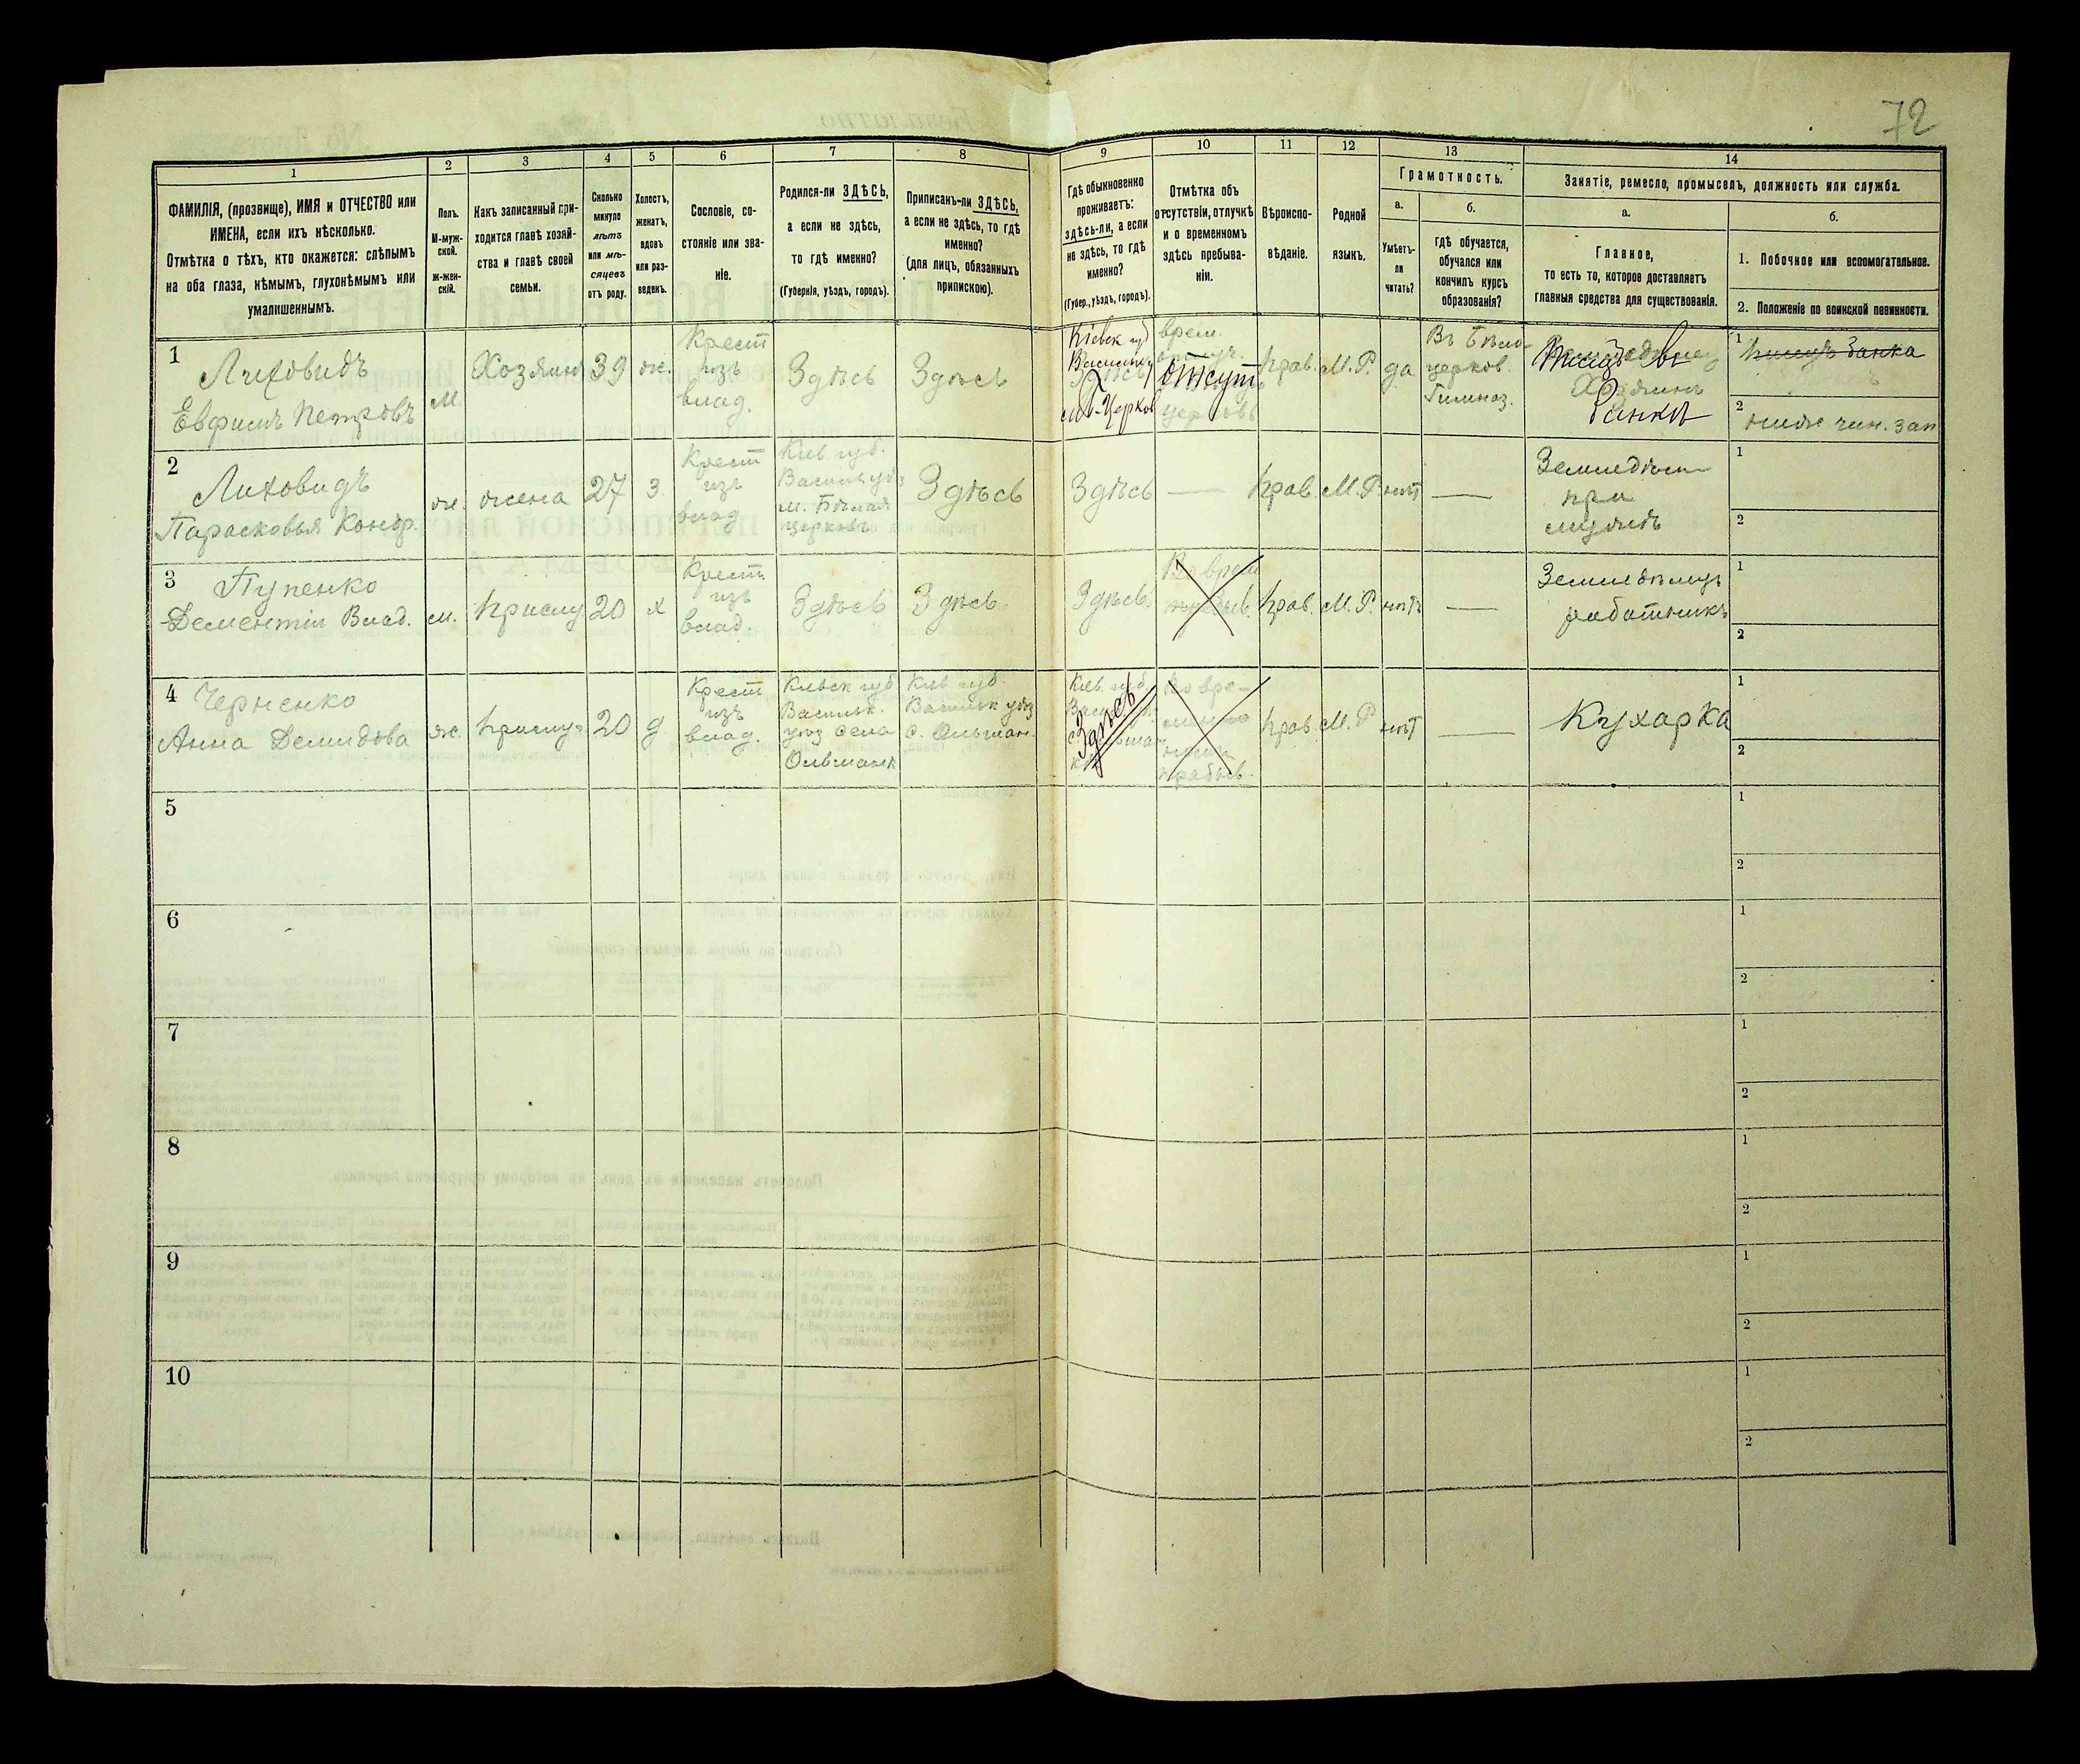 72
1
2
3
4
5
6
7
8
9
10
11
12
13
14
ФАМИЛІЯ, (прозвище), ИМЯ и ОТЧЕСТВО или
ИМЕНА, если ихъ нѣсколько.
Отмѣтка о тѣхъ, кто окажется: слѣпымъ
на оба глаза, нѣмымъ, глухонѣмымъ или
умалишеннымъ.
Полъ.
М-муж-
ской.
ж-жен-
скій.
Какъ записанный при-
ходится главѣ хозяй-
ства и главѣ своей
семьи.
Сколько
минуло
лѣтъ
или мѣ-
сяцевъ
отъ роду.
Холостъ,
женатъ,
вдовъ
или раз-
веденъ.
Сословіе, со-
стояніе или зва-
ніе.
Родился-ли ЗДѢСЬ,
а если не здѣсь,
то гдѣ именно?
(Губернія, уѣздъ, городъ).
Приписанъ-ли ЗДѢСЬ,
а если не здѣсь, то гдѣ
именно?
(для лицъ, обязанныхъ
припискою).
Гдѣ обыкновенно
проживаетъ:
здѣсь-ли, а если
не здѣсь, то гдѣ
именно?
(Губер., уѣздъ, городъ).
Отмѣтка объ
отсутствіи, отлучкѣ
и о временномъ
здѣсь пребыва-
ніи.
Вѣроиспо-
вѣданіе.
Родной
языкъ.
Грамотность.
а.
Умѣетъ-
ли
читать?
б.
гдѣ обучается,
обучался или
кончилъ курсъ
образованія?
Занятіе, ремесло, промыселъ, должность или служба.
а.
Главное,
то есть то, которое доставляетъ
главныя средства для существованія.
б.
1. Побочное или вспомогательное.
2. Положеніе по воинской повинности.
1
Лиховидъ
Евфимъ Петровъ
М.
Хозяинъ
39
ж.
Крест
изъ
влад.
Здѣсь
Здѣсь
Кіевск губ
М-Церков
врем.
отсут
прав.
М. Р.
да
Въ Бѣло-
церков.
Гимназ.
Хозяинъ
банкѣ
1
писецъ банка
2
ниж чин. зап
2
Лиховидъ
Парасковья Кондр.
ж.
жена
27
з.
Крест
изъ
влад
Кіев губ.
Васильк уѣз
м. Бѣлая
церковь
Здѣсь
Здѣсь
—
прав.
М. Р.
нѣт
—
Земледѣл
при
мужѣ
1
2
3
Пупенко
Дементій Влад.
м.
прислу
20
х
Крест.
изъ
влад.
Здѣсь
Здѣсь
Здѣсь.
прав.
М. Р.
нѣтъ
—
Земледѣлец
работникъ
1
2
4
Черненко
Анна Демидова
ж.
прислу
20
д
Крест
изъ
влад.
Кіевск губ
Васильк.
уѣз села
Ольшанк
Кіев. губ.
Васильк уѣз
с. Ольшан.
Кіев. губ.
Здѣсь
пребыв.
прав.
М. Р
нѣт
—
Кухарка
1
2
5
1
2
6
1
2
7
1
2
8
1
2
9
1
2
10
1
2